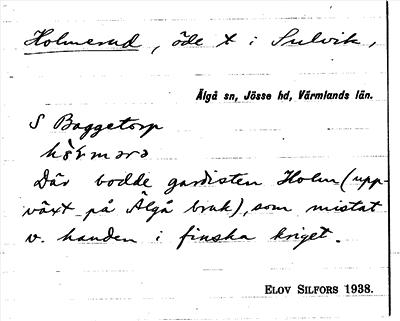 Holmerud, öde + i Sulvik,
Älgå sn, Jösse hd, Värmlands län.
S Baggetorp
Där bodde gardisten Holm (upp-
växt på Älgå bruk), som mistat
v. handen i finska kriget.
ELOV SILFORS 1938.